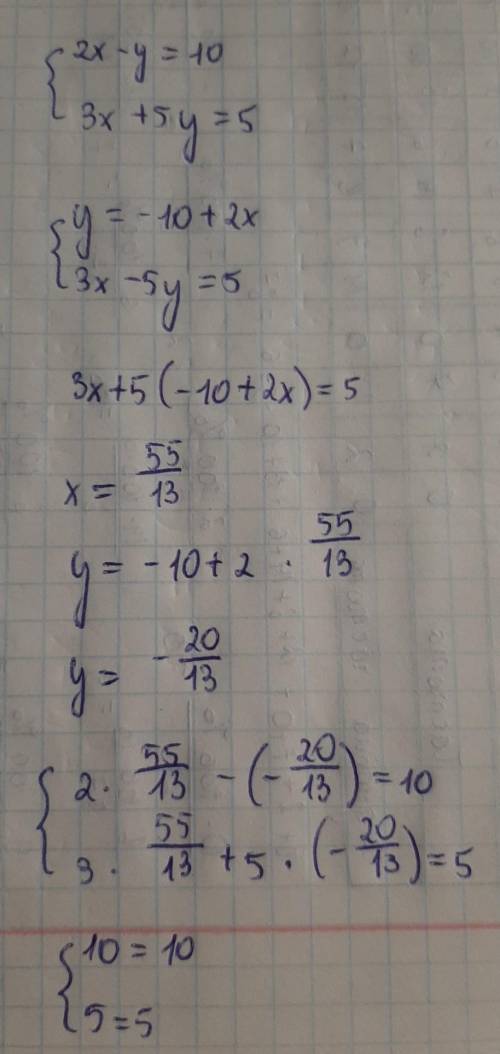 2x - y = 10
3x + 5y = 5
y = -10 + 2x
3x - 5y = 5
3x + 5 (-10 + 2x) = 5
x = 55/13
y = -10 + 2 · 55/13
y = - 20/13
2 · 55/13 - (- 20/13) = 10
3 · 55/13 + 5 · (- 20/13) = 5
10 = 10
5 = 5